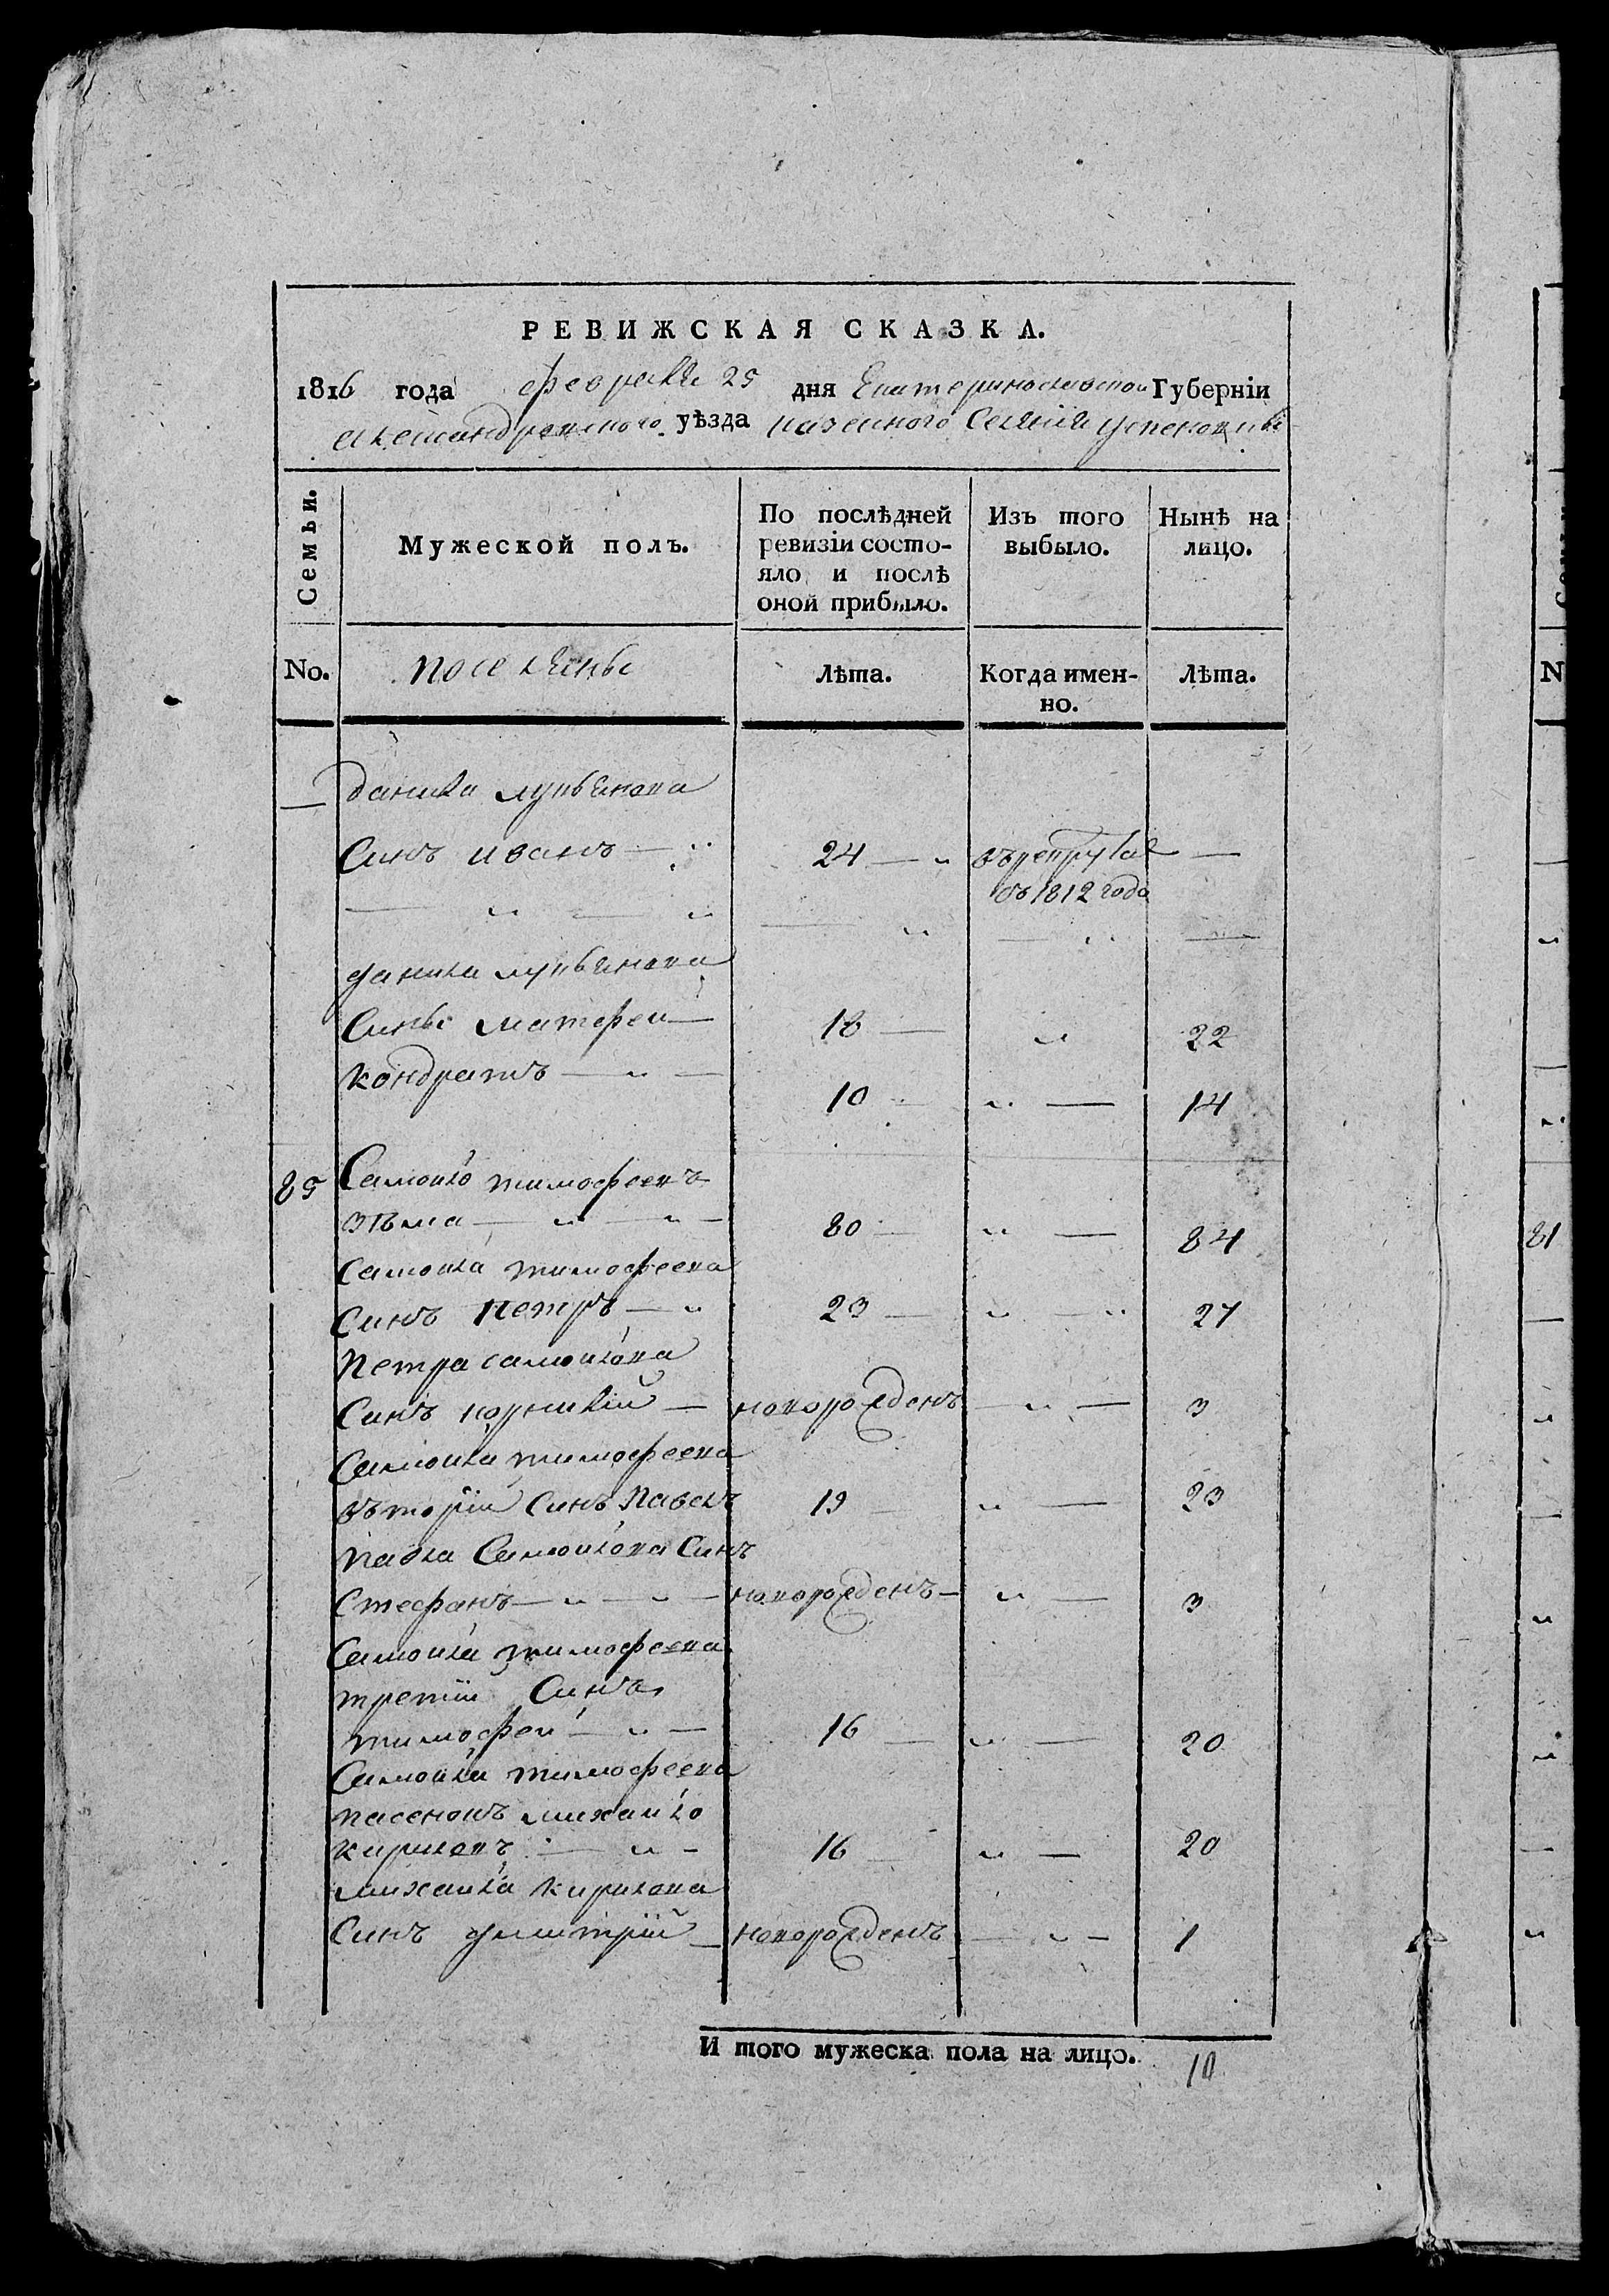 РЕВИЖСКАЯ СКАЗКА.
1816 года февраля 25 дня Екатеринославской Губерніи
Александровского уѣзда казенного Селенія Успеновки
Семьи.
Мужеской полъ.
По послѣдней ревизіи состо-
яло и послѣ
оной прибыло.
Изъ того
выбыло.
Нынѣ на
лицо.
No. поселяны Лѣта. Когда имен-
но. Лѣта.
— данила лукьянова
Синъ иванъ — 24 — „ въ рекрута —
въ 1812 года
— „ — „ — „ — „ —
данила лукьянова
Сины матфеи — 18 — „ 22
кондратъ — „ — 10 — „ — 14
85 Самоило тимофеевъ
зѣма — „ — „ — 80 — „ — 84
Самоила тимофеева
Синъ петръ — „ 23 — „ — „ 27
петра самоилова
Синъ корнилій — новорожденъ — „ — 3
Самоила тимофеева
въторій Синъ Павелъ 19 — „ — 23
павла Самоилова Синъ
Стефанъ — „ — „ — новорожденъ — „ — 3
Самоила тимофеева
третіи Синъ
тимофеи — „ — 16 — „ — 20
Самоила тимофеева
пасенокъ михаило
кириловъ — „ — 16 — „ — 20
михаила кирилова
Синъ дмитрій — новорожденъ — „ — 1
И того мужеска пола на лицо. 10
N
81